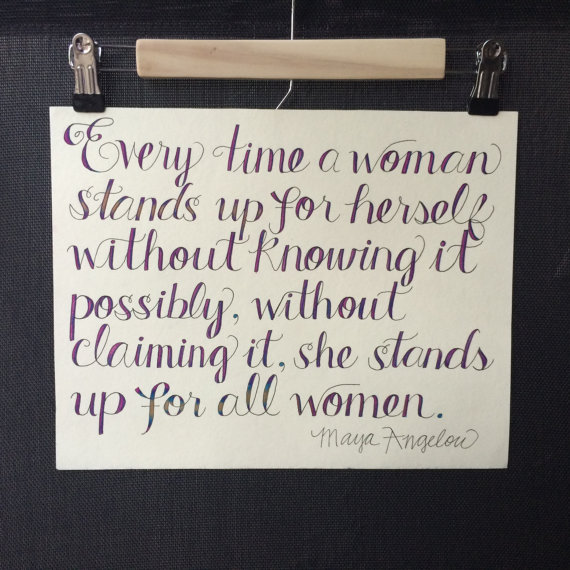 Every time a woman
stands up for herself
without knowing it
possibly, without
claiming it, she stands
up for all women.
Maya Angelou